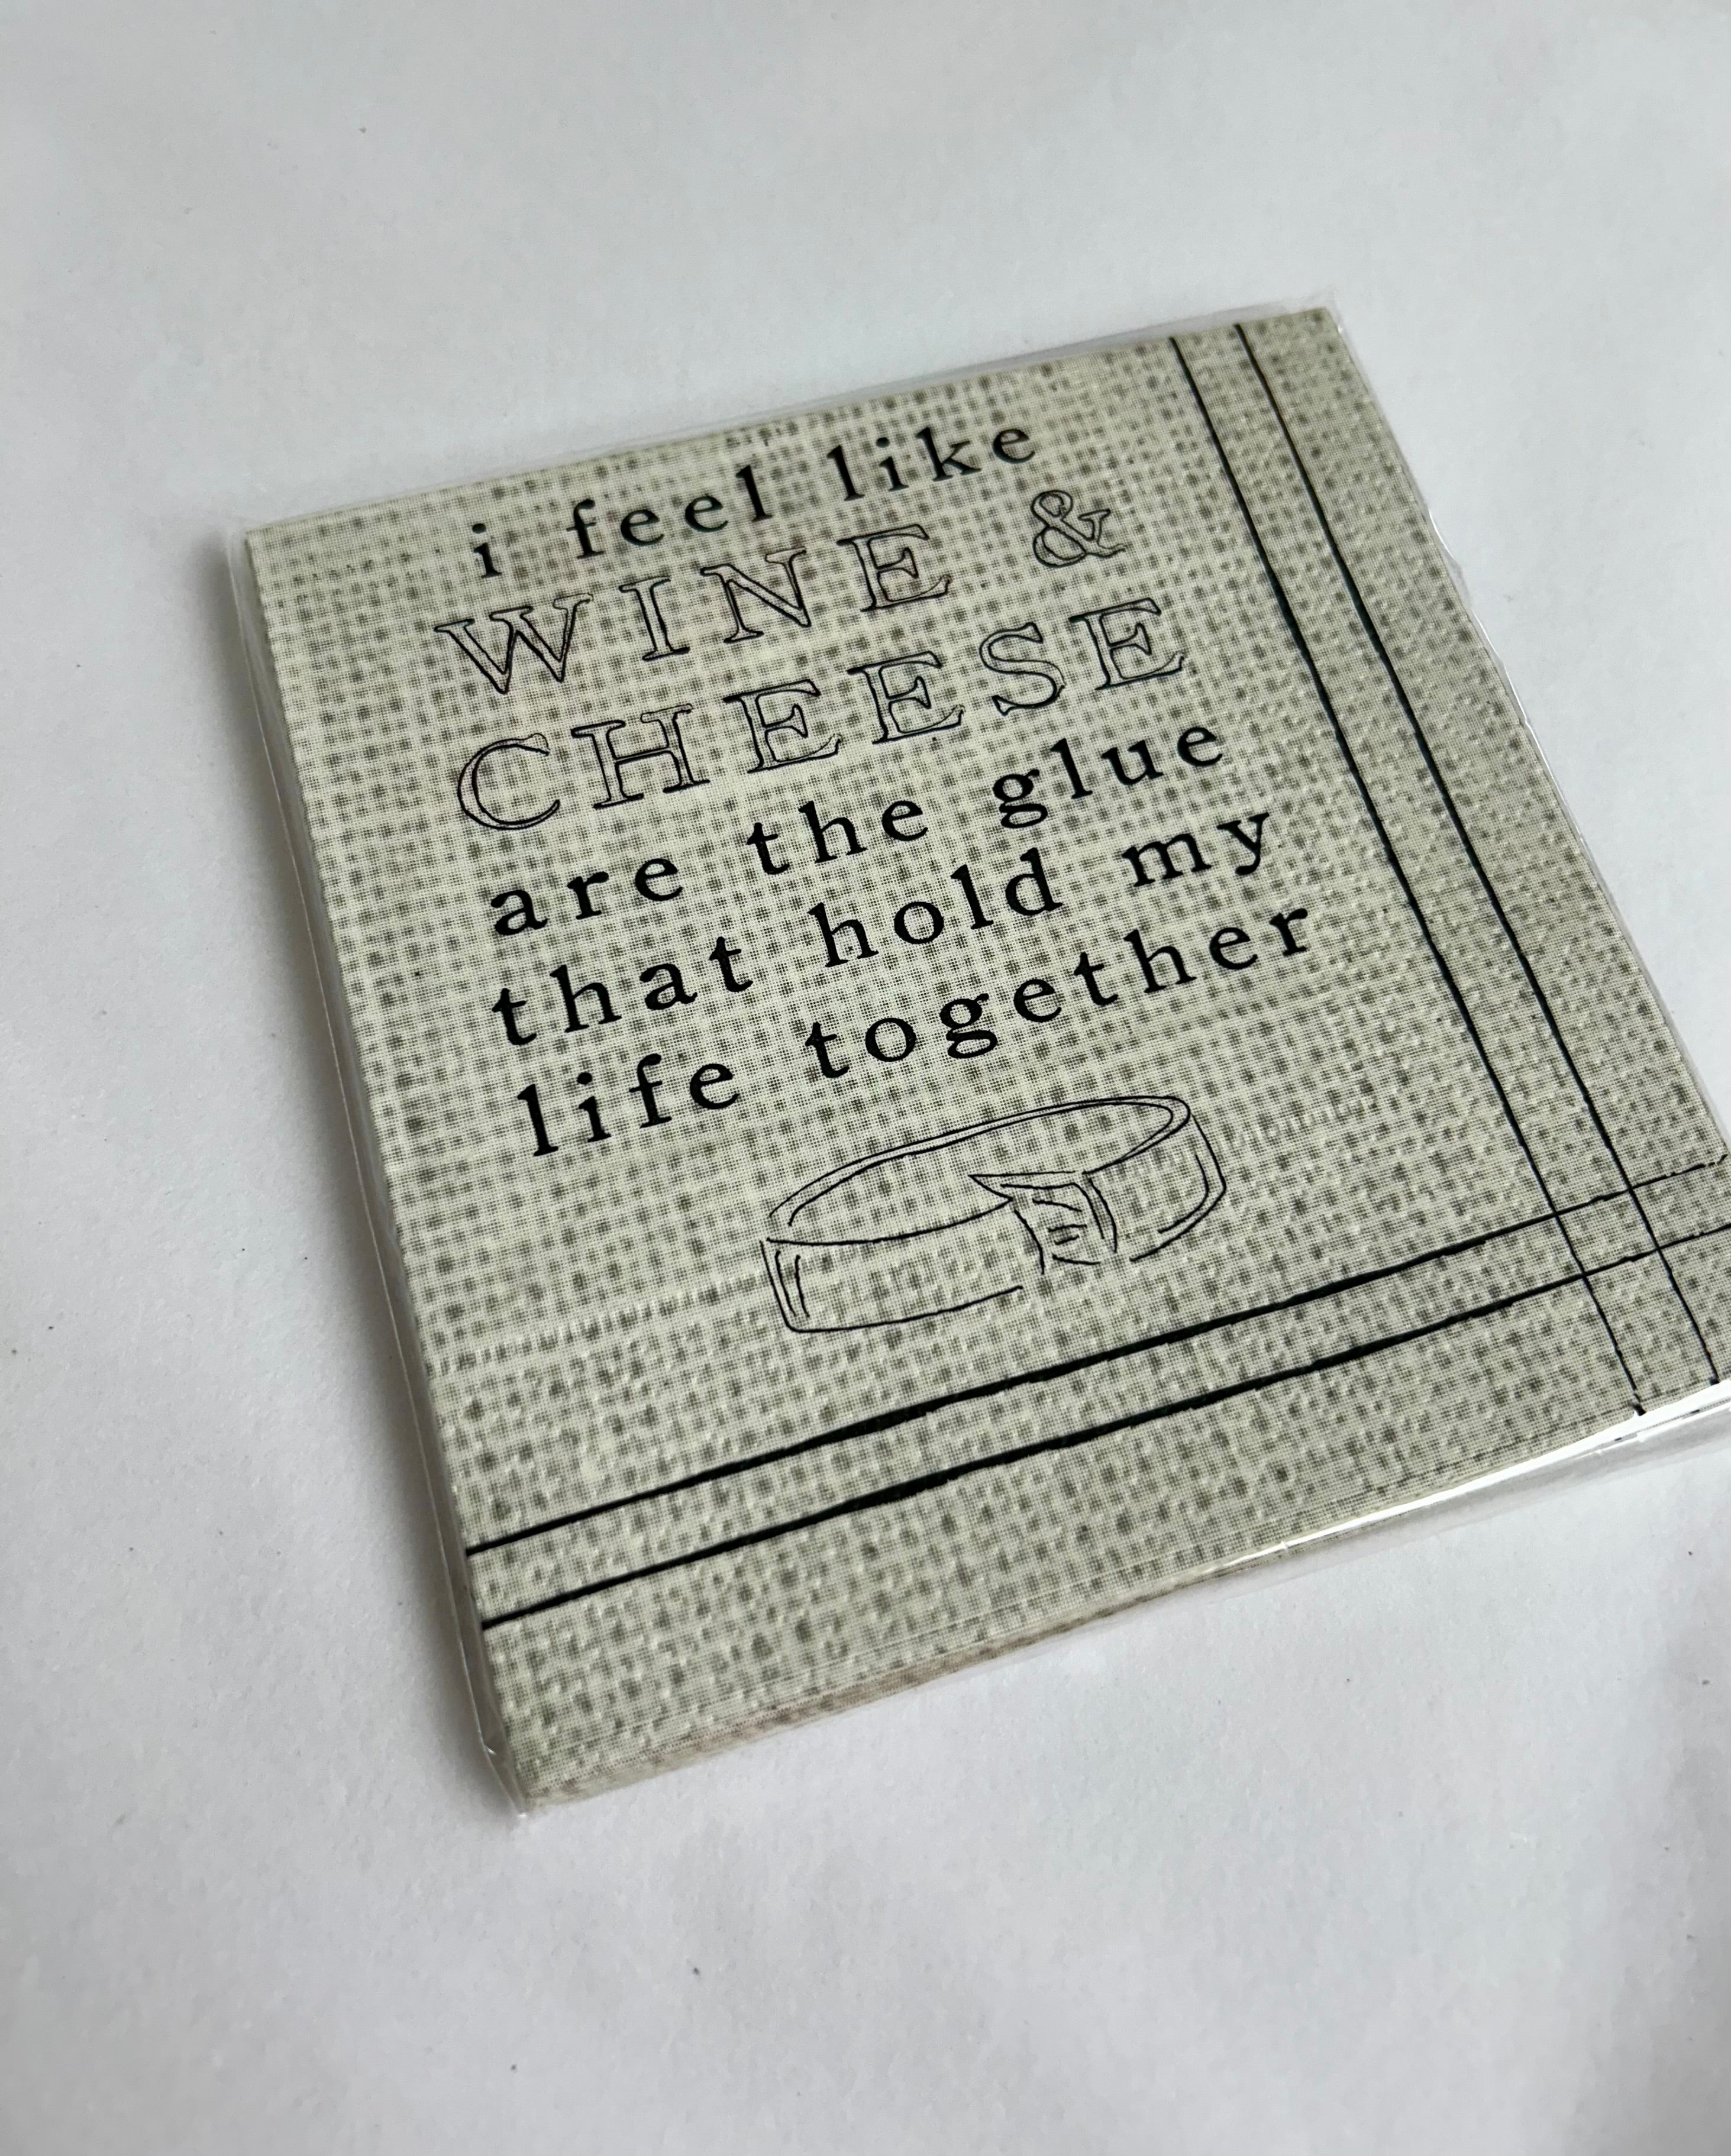 i feel like
WINE &
CHEESE
are the glue
that hold my
life together